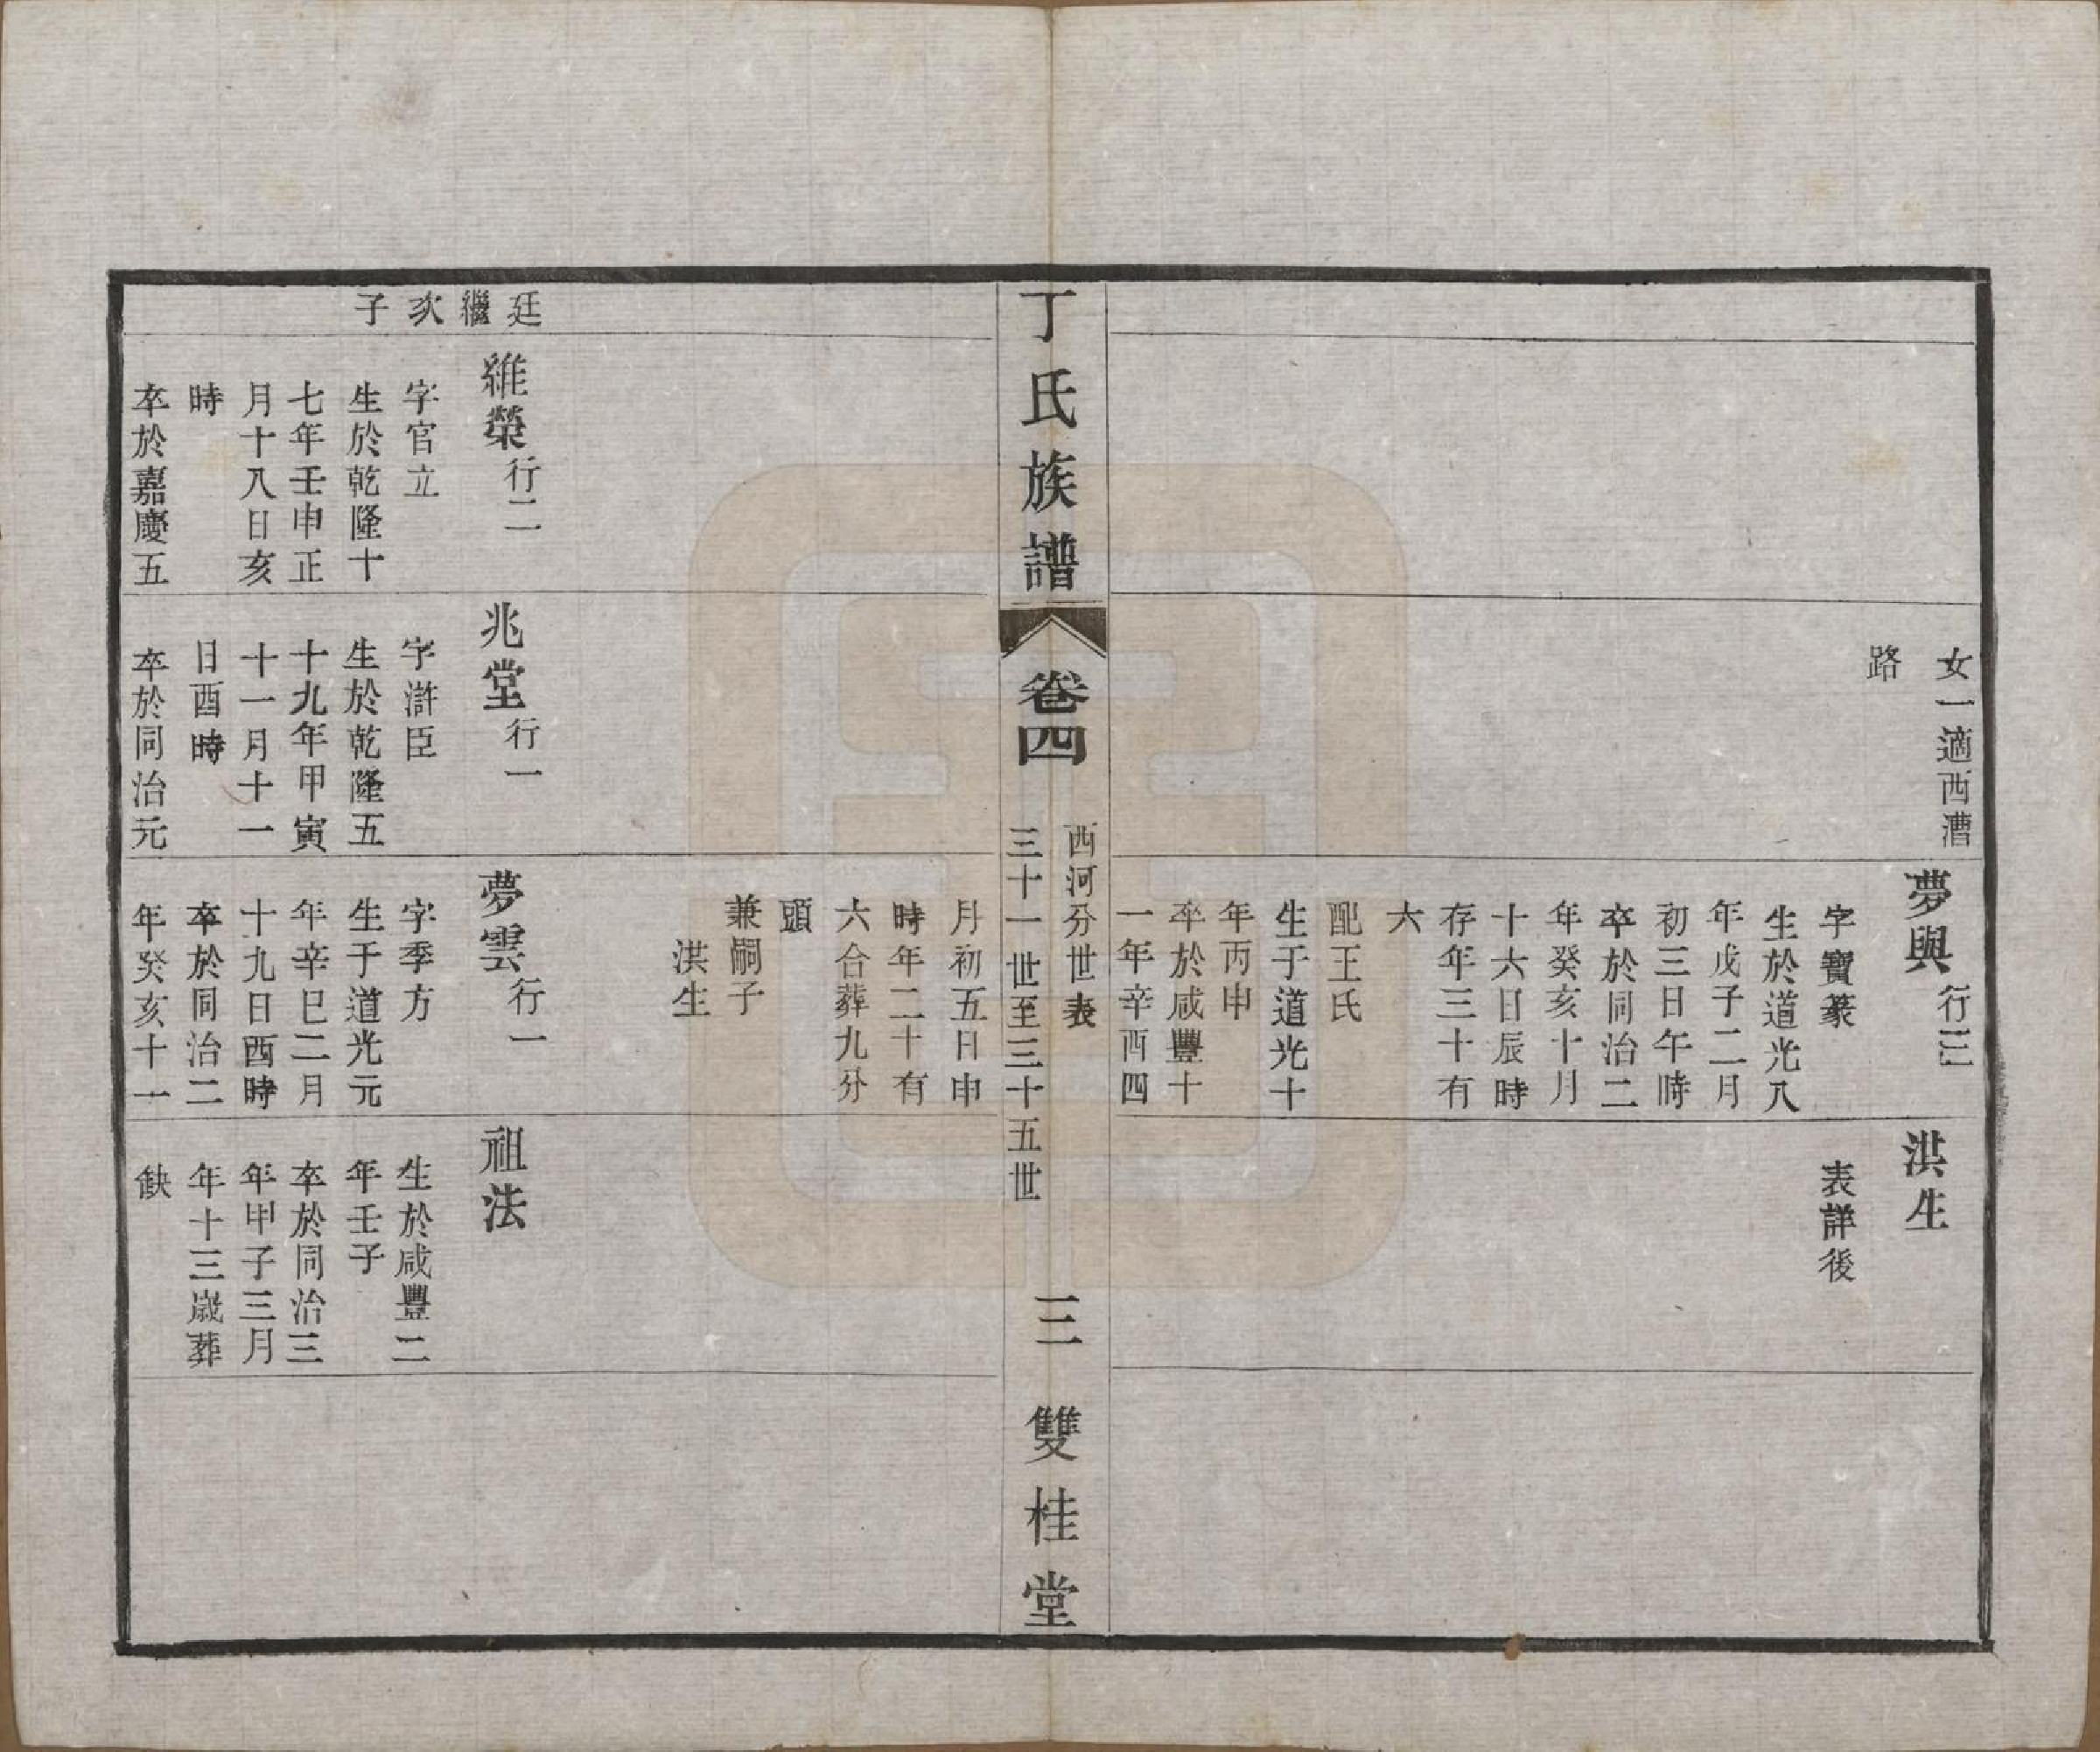 女一適西漕
路
夢與行三
字寶篆
生於道光八
年戊子二月
初三日午時
卒於同治二
年癸亥十月
十六日辰時
存年三十有
六
配王氏
生于道光十
年丙申
卒於咸豐十
一年辛酉四
洪生
表詳後
丁氏族譜
卷四
西河分世表
三十一世至三十五世
三
雙桂堂
月初五日申
時年二十有
六合葬九分
頭
兼嗣子
洪生
廷
繼
次
子
維榮行二
字官立
生於乾隆十
七年壬申正
月十八日亥
時
卒於嘉慶五
兆堂行一
字滸臣
生於乾隆五
十九年甲寅
十一月十一
日酉時
卒於同治元
夢雲行一
字季方
生于道光元
年辛巳二月
十九日酉時
卒於同治二
年癸亥十一
祖法
生於咸豐二
年壬子
卒於同治三
年甲子三月
年十三歲葬
缺